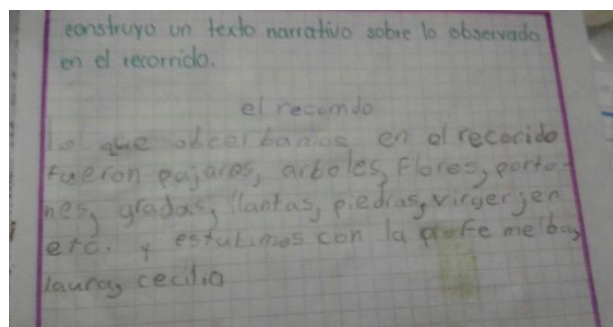 construyo un texto narrativo sobre lo observado
en el recorrido.
el recorrido
lo que obcerbamos en el recocido
fueron pajaros, arboles, Flores, porto-
nes, gradas, llantas, piedras, virgerjen
etc. y estubimos con la profe melba,
laura, cecilia